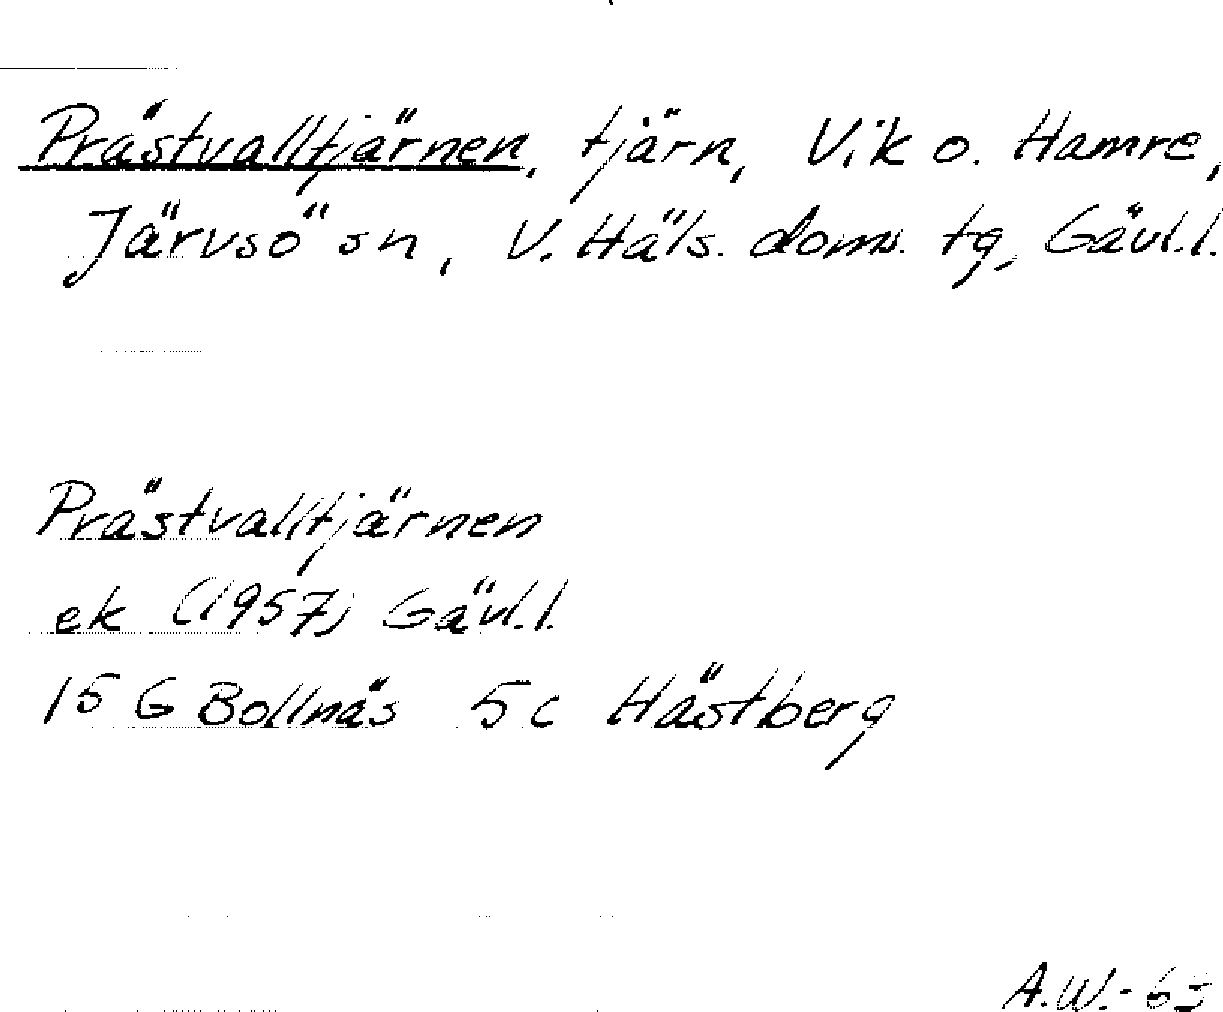 Prästvalltjärnen, tjärn, Vik o. Hamre,
Järvsö sn, V. Häls. doms. tg, Gävl.l.
Prästvalltjärnen
ek (1957) Gävl.l.
15 G Bollnäs 5c Hästberg
A.W.-63